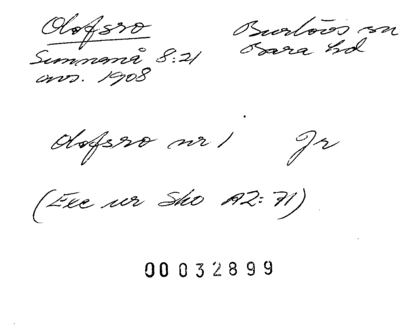 Olofsro Burlövs sn
Svenneå 8:21 Bara hd
avs. 1908
Olofsro nr 1 Jr
(Exc ur Sko A2:71)
00032899